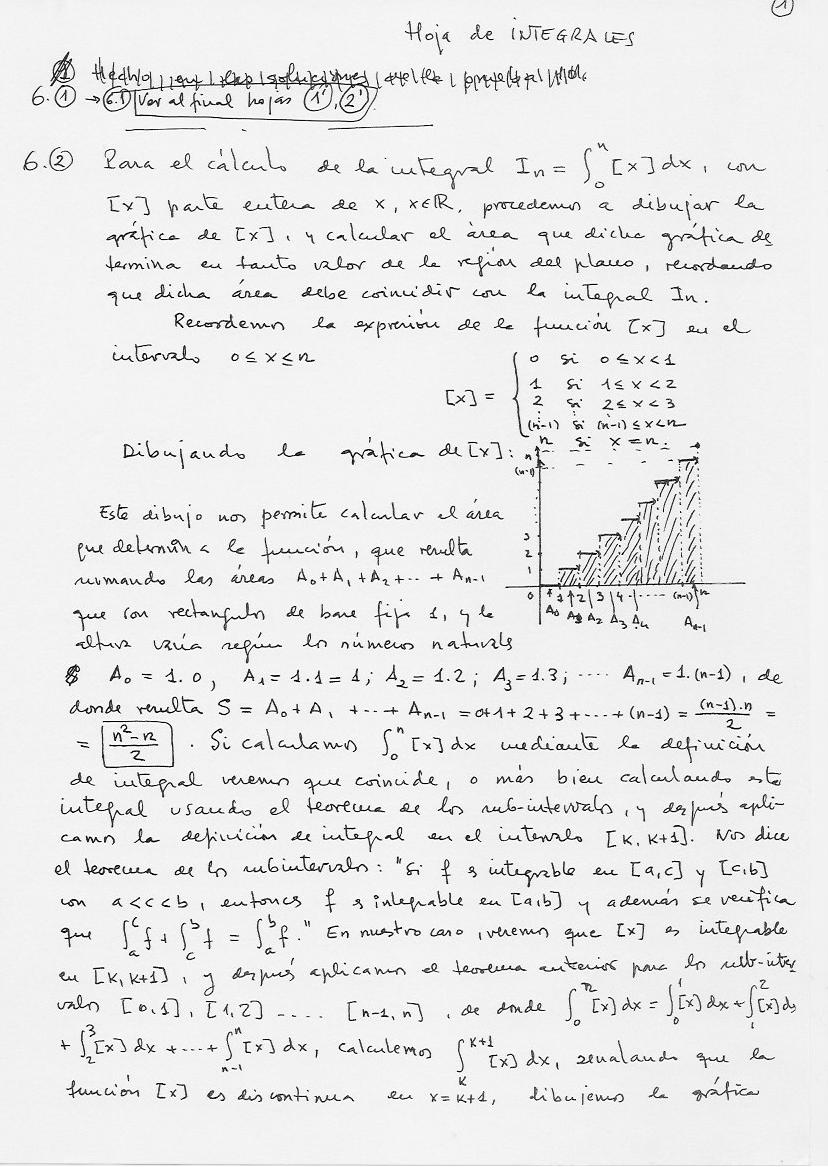 1
Hoja de INTEGRALES
6.① → 6.1 Ver al final hojas 1', 2'
6.② Para el cálculo de la integral Iₙ = ∫₀ⁿ [x] dx, con
[x] parte entera de x, x∈ℝ, procedemos a dibujar la
gráfica de [x], y calcular el área que dicha gráfica de
termina en tanto valor de la región del plano, recordando
que dicha área debe coincidir con la integral Iₙ.
Recordemos la expresión de la función [x] en el
intervalo 0 ≤ x ≤ n
[x] =
0 si 0 ≤ x < 1
1 si 1 ≤ x < 2
2 si 2 ≤ x < 3
(n-1) si (n-1) ≤ x < n
n si x = n.
Dibujando la gráfica de [x]:
n
(n-1)
3
2
1
0 1 2 3 4 ..... (n-1) n
A₀ A₁ A₂ A₃ A₄ Aₙ₋₁
Este dibujo nos permite calcular el área
que determina la función, que resulta
sumando las áreas A₀+A₁+A₂+...+Aₙ₋₁
que son rectangulos de base fija 1, y la
altura varía según los números naturales
A₀ = 1.0, A₁ = 1.1 = 1; A₂ = 1.2; A₃ = 1.3; .... Aₙ₋₁ = 1.(n-1), de
donde resulta S = A₀+A₁+...+Aₙ₋₁ = 0+1+2+3+...+(n-1) = (n-1).n/2 =
= n²-n/2 . Si calculamos ∫₀ⁿ [x] dx mediante la definición
de integral veremos que coincide, o más bien calculando esta
integral usando el teorema de los sub-intervalos, y después apli-
camos la definición de integral en el intervalo [k, k+1]. Nos dice
el teorema de los subintervalos: "Si f es integrable en [a,c] y [c,b]
con a<c<b, entonces f es integrable en [a,b] y además se verifica
que ∫ₐᶜ f + ∫꜀ᵇ f = ∫ₐᵇ f." En nuestro caso, veremos que [x] es integrable
en [k, k+1], y después aplicamos el teorema anterior para los sub-inter
valos [0,1], [1,2] .... [n-1, n], de donde ∫₀ⁿ [x] dx = ∫₀¹ [x] dx + ∫₁² [x] dx
+ ∫₂³ [x] dx + ... + ∫ₙ₋₁ⁿ [x] dx, calculemos ∫ₖᵏ⁺¹ [x] dx, senalando que la
función [x] es discontinua en x = k+1, dibujemos la gráfica